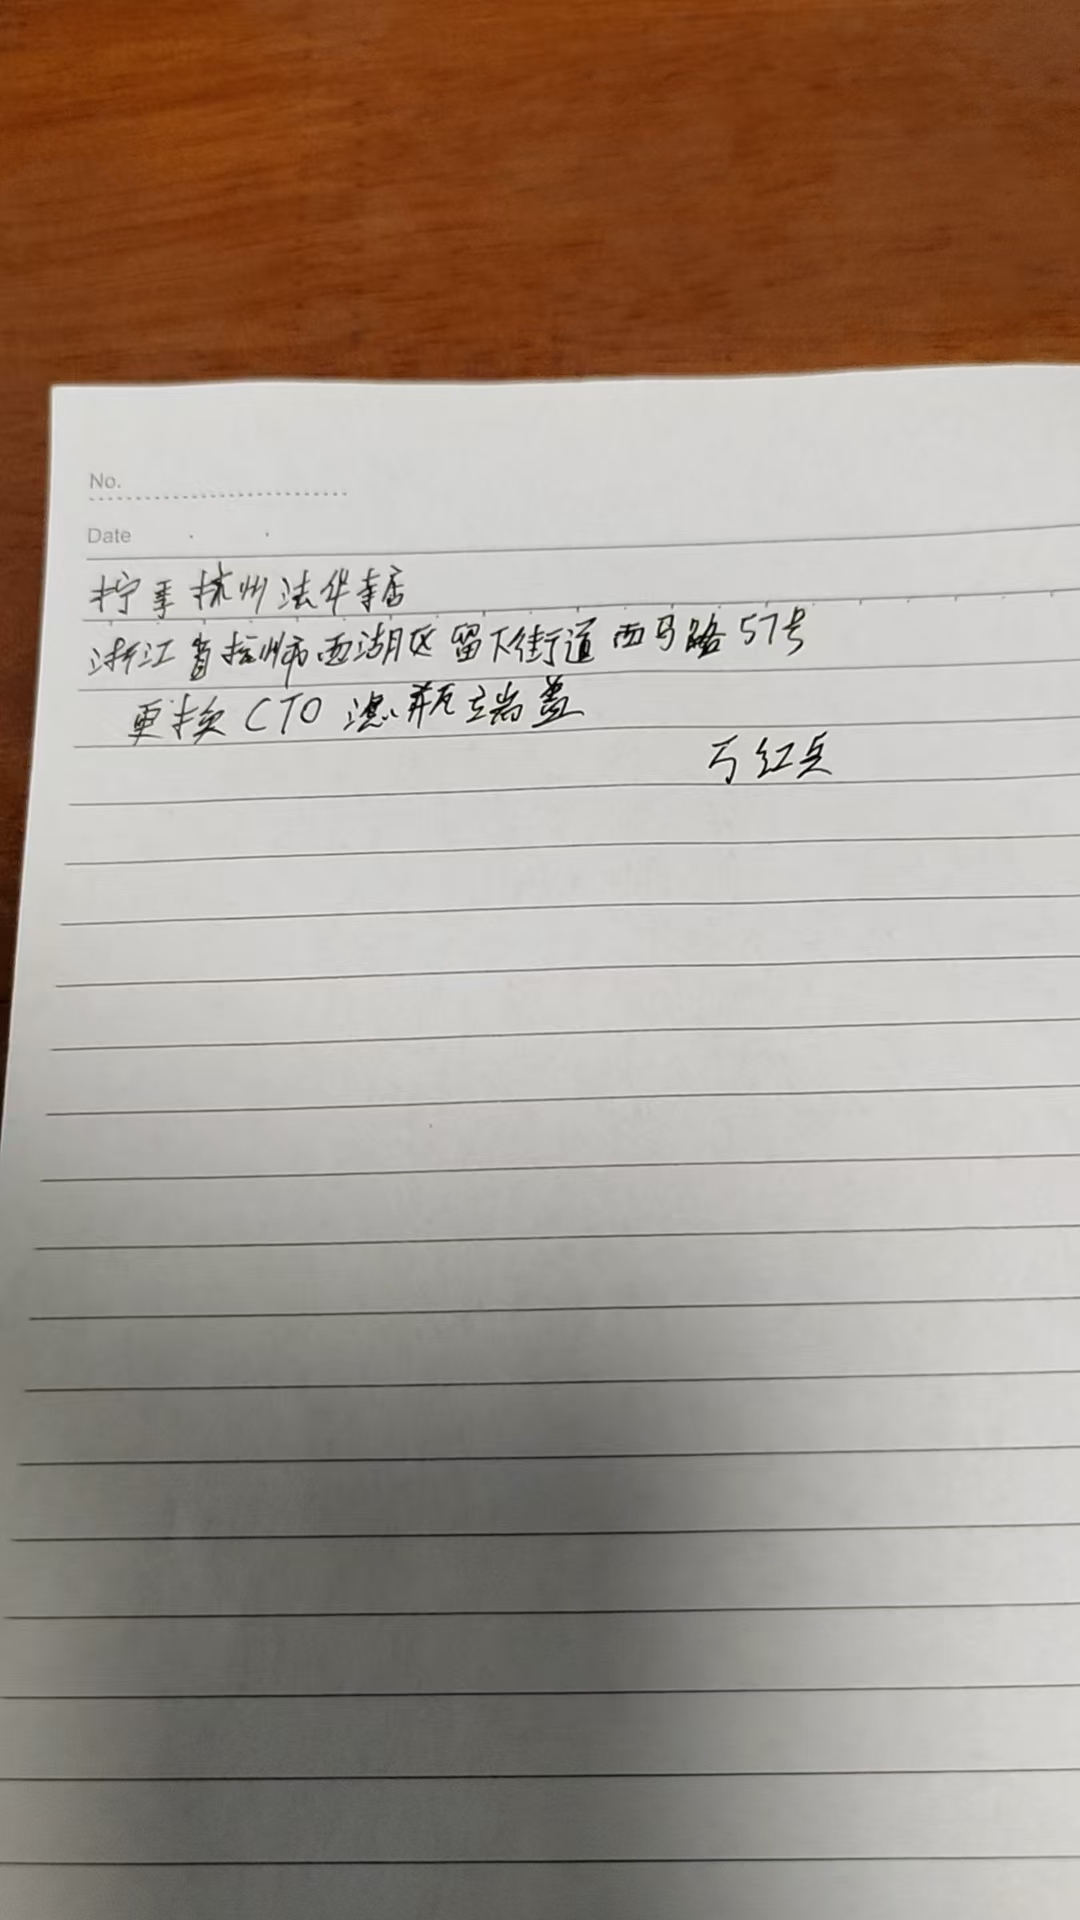 No.
Date
拧季杭州法华寺店
浙江省杭州市西湖区留下街道西马路57号
更换CTO滤瓶端盖
丁红兵